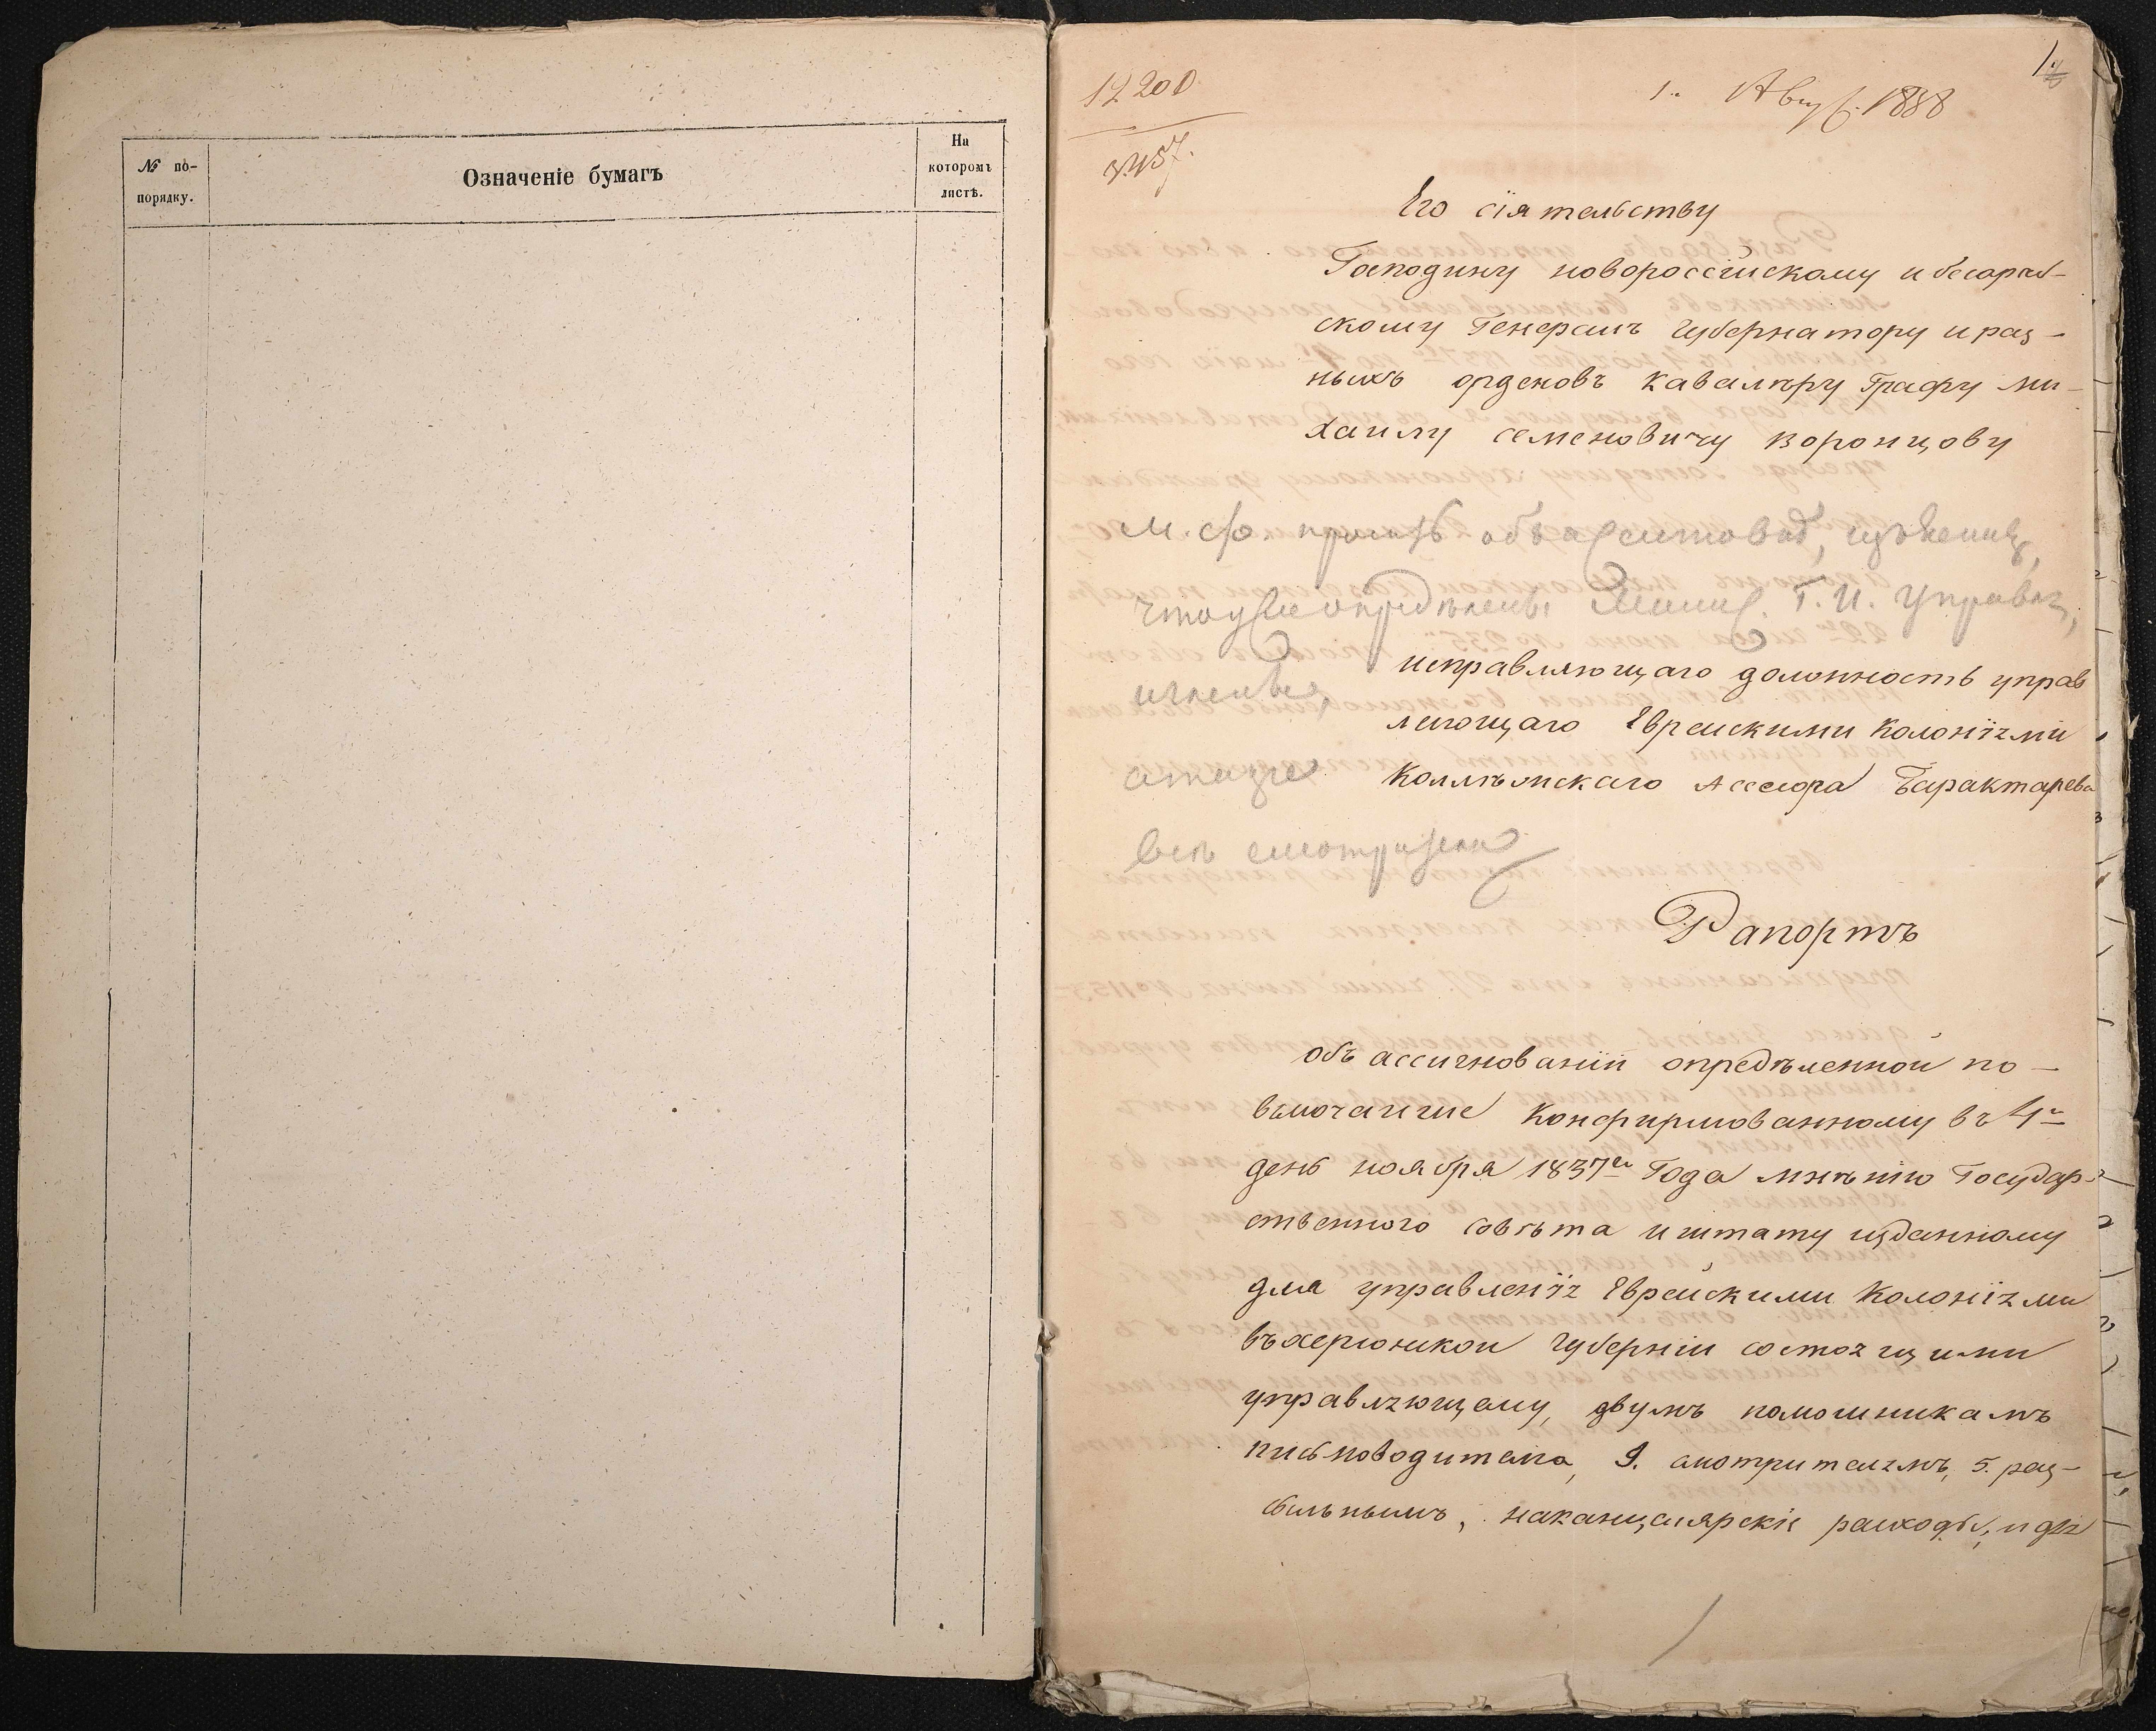 № по-
порядку.
Означеніе бумагъ
На
которомъ
листѣ.
12200
1.
1. Авг. 1838
Его сіятельству
Господину новороссійскому и бесараб-
скому Генералъ Губернатору и раз-
ныхъ орденовъ кавалѣру Графу ми-
хаилу семеновичу воронцову
исправляющаго должность управ
леющаго Еврейскими Колоніями
Коллѣжскаго Ассесора Барактарева
Рапортъ
объ ассигнованіи опредѣленной по-
высочайше Конфирмованному въ 4й
день ноября 1837го Года мнѣнію Государ-
ственного совѣта и штату изданному
для управленія Еврейскими Колоніями
въ херсонской Губерніи состоящими
управляющему, двумъ помошникамъ
письмоводителю, 9. смотрителямъ, 5. раз-
сыльнымъ, на канцелярскіе расходы, и для